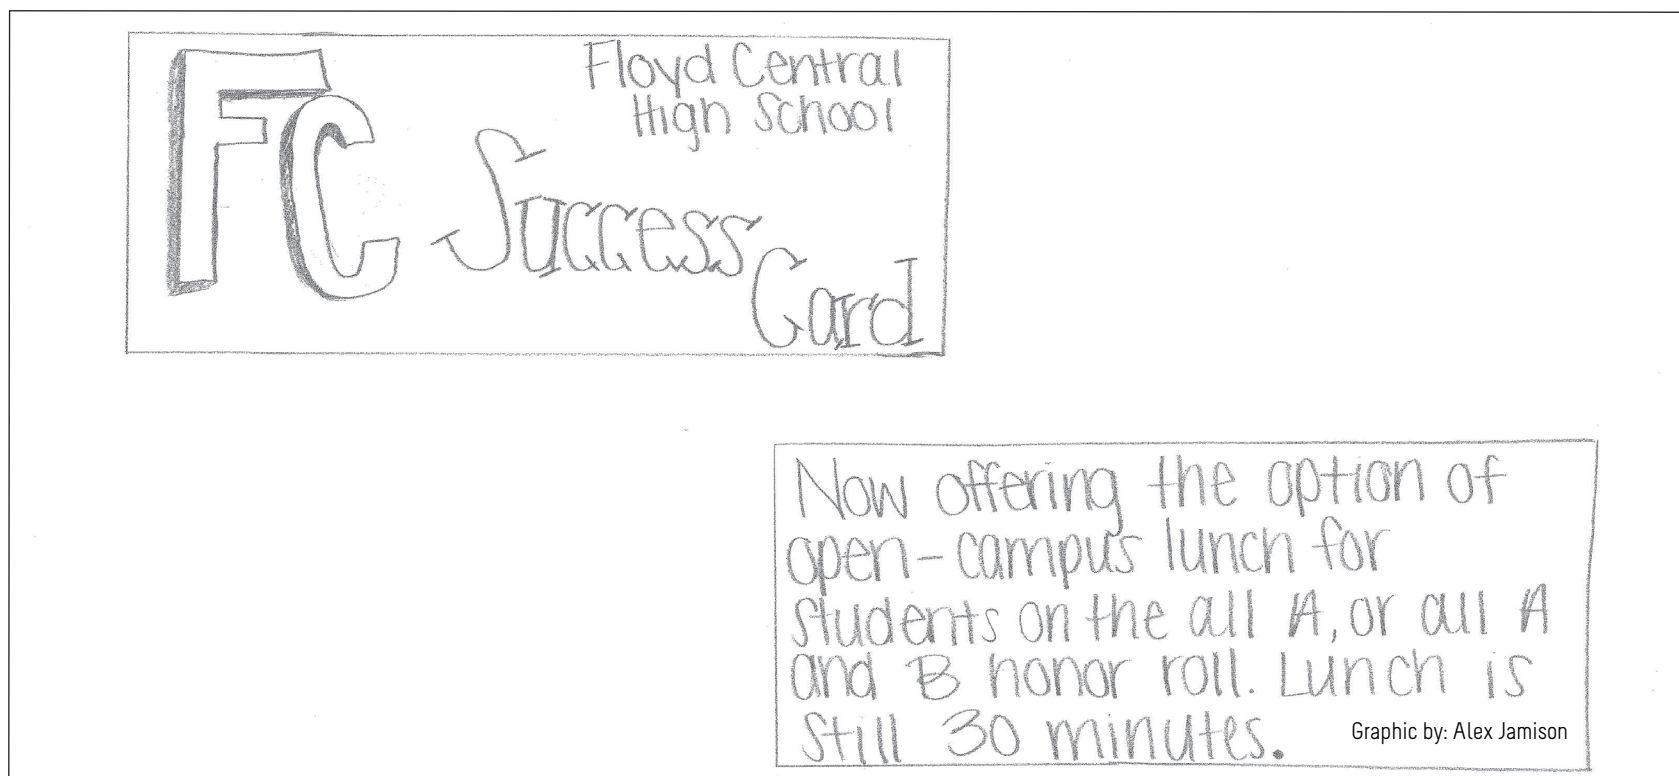 FC
Floyd Central
High School
Success
Card
Now offering the option of
open-campus lunch for
students on the all A, or all A
and B honor roll. Lunch is
still 30 minutes.
Graphic by: Alex Jamison